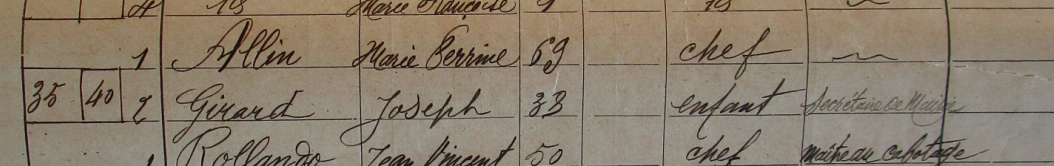 4 id Marie Françoise 9 id ~
1 Allin Marie Perrine 69 chef ~
35 40 2 Girard Joseph 33 enfant Secrétaire de Mairie
1 Rollando Jean Vincent 50 chef Maître au cabotage